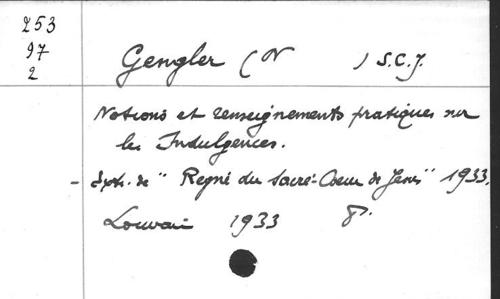 253
97
2
Gengler (N ) S.C.J.
Notions et renseignements pratiques sur
les Indulgences.
- Extr. de "Regne du Sacré-Coeur de Jésus" 1933.
Louvain 1933 8°.